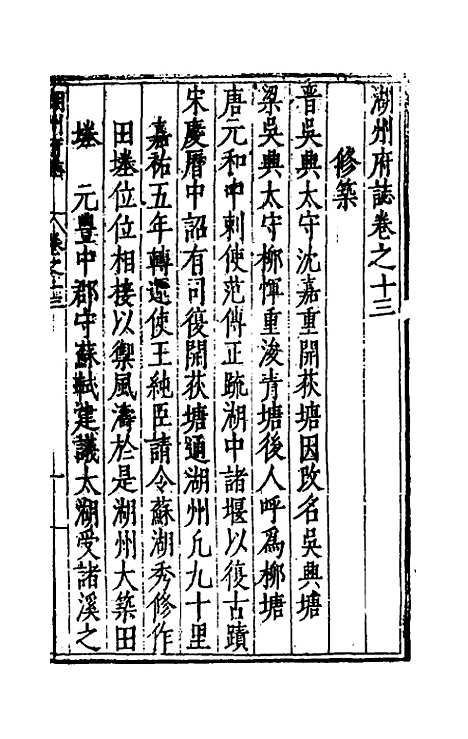 湖州府誌卷之十三
修築
晉吳興太守沈嘉重開荻塘因改名吳興塘
梁吳興太守柳惲重浚青塘後人呼爲柳塘
唐元和中刺使范傳正䟽湖中諸堰以復古蹟
宋慶曆中詔有司復開荻塘通湖州凢九十里
嘉祐五年轉運使王純臣請令蘇湖秀修作
田塍位位相接以禦風濤於是湖州大築田
塍　元豐中郡守蘇軾建議太湖受諸溪之
湖州府誌 卷之十三 一